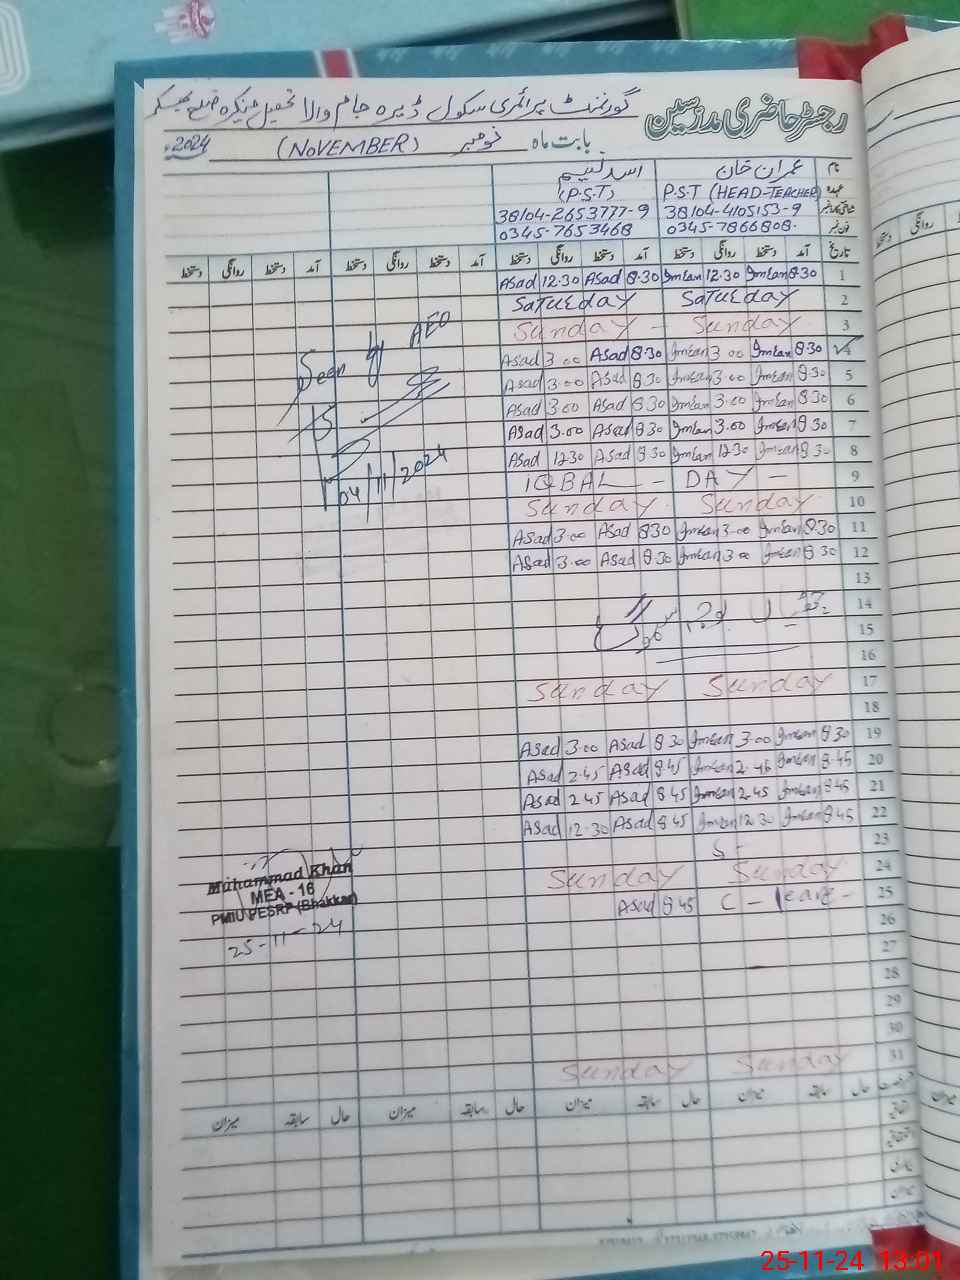 رجسٹر حاضری مدرسین گورنمنٹ پرائمری سکول ڈیرہ جام والا تحصیل منکیرہ ضلع بھکر
بابت ماہ نومبر (NOVEMBER) 2024ء
نام عمران خان اسد نسیم
عہدہ P.S.T (HEAD-TEACHER) (P.S.T)
شناختی کارڈ نمبر 38104-4105153-9 38104-2653777-9
فون نمبر 0345-7866808. 0345-7653468
تاریخ آمد دستخط روانگی دستخط آمد دستخط روانگی دستخط آمد دستخط روانگی دستخط آمد دستخط روانگی دستخط
Asad 12.30 Asad 8.30 Imran 12.30 Imran 8.30 1
Saturday Saturday 2
Sunday - Sunday 3
Asad 3.00 Asad 8.30 Imran 3.00 Imran 8.30 4
Asad 3.00 Asad 8.30 Imran 3.00 Imran 8.30 5
Asad 3.00 Asad 8.30 Imran 3.00 Imran 8.30 6
Asad 3.00 Asad 8.30 Imran 3.00 Imran 8.30 7
Asad 12.30 Asad 8.30 Imran 12.30 Imran 8.30 8
IQBAL - DAY - 9
Sunday Sunday 10
Asad 3.00 Asad 8.30 Imran 3.00 Imran 8.30 11
Asad 3.00 Asad 8.30 Imran 3.00 Imran 8.30 12
13
14
15
16
Sunday Sunday 17
18
Asad 3.00 Asad 8.30 Imran 3.00 Imran 8.30 19
Asad 2.45 Asad 8.45 Imran 2.45 Imran 8.45 20
Asad 2.45 Asad 8.45 Imran 2.45 Imran 8.45 21
Asad 12.30 Asad 8.45 Imran 12.30 Imran 8.45 22
S - 23
Sunday Sunday 24
Asad 8.45 C - leave - 25
26
27
28
29
30
Sunday Sunday 31
حال سابقہ میزان حال سابقہ میزان حال سابقہ میزان حال سابقہ میزان
Seen by AEO
04/11/2024
Muhammad Khan
MEA - 16
PMIU PESRP (Bhakkar)
25-11-24
25-11-24 13:01